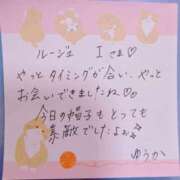 ルージュ Iさま♡
やっとタイミングが合い、やっと
お会いできましたね♡
今日の帽子もとても
素敵でしたよぉ
ゆうか